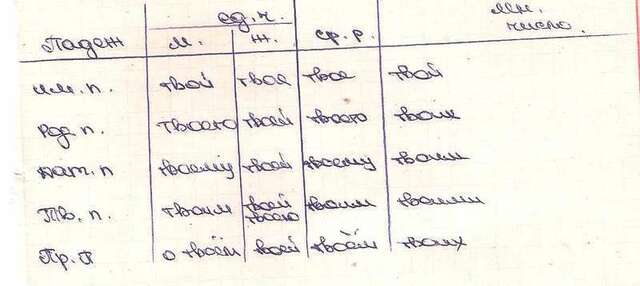 ед.ч. мн.
Падеж м. ж. ср. р. число.
им. п. твой твое твое твой
Род. п. твоего твоей твоего твоих
дат. п твоему твоей твоему твоим
Тв. п. твоим твоей твоим твоими
твоею
Пр. п о твоём твоей твоём твоих